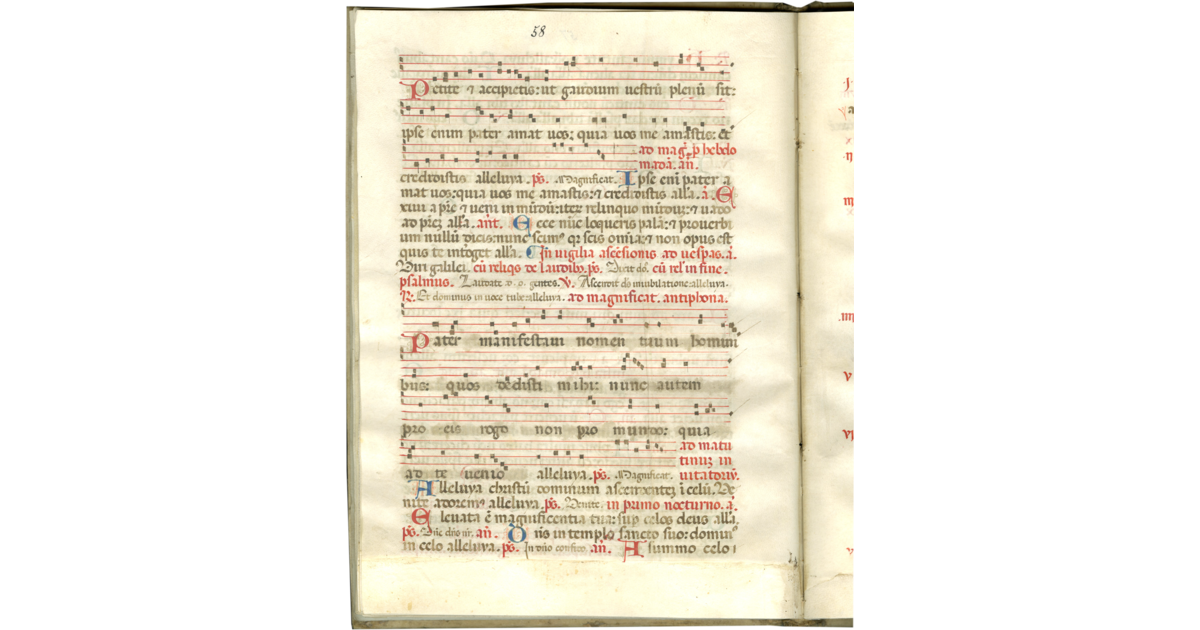 58
Petite ⁊ accipietis: ut gaudium uestrū plenū sit:
ipse enim pater amat uos: quia uos me amastis: et
ad mag̅. p hebdo
madā. an̅.
credidistis alleluya. ps̅. Magnificat. Ipse eni pater a
mat uos: quia uos me amastis: ⁊ credidistis alla̅. a̅. E
xiui a pr̅e ⁊ ueni in mūdū: iter̅ relinquo mūdū: ⁊ uado
ad pr̅ez alla̅. an̅t. Ecce nūc loqueris palā: ⁊ prouerbi
um nullū dicis: nunc scim⁹ qr scis om̅ia: ⁊ non opus est
quis te int̅roget alla̅. In uigilia ascēsionis ad uespas. a̅.
Uiri galilei. cū reliq̅s de laudib⁊. ps̅. Dixit dn̅s. cū rel' in fine.
psalmus. Laudate d. o. gentes. V. Ascendit ds̅ in iubilatione alleluya.
R. Et dominus in uoce tube alleluya. ad magnificat. antiphona.
Pater manifestaui nomen tuum homini
bus: quos dedisti mihi: nunc autem
pro eis rogo non pro mundo: quia
ad matu
tinuz in
ad te uenio alleluya. ps̅. Magnificat. uitatoriū.
Alleluya christū dominum ascendentez ī celū. Ue
nite adorem⁹ alleluya. ps̅. Uenite. in primo nocturno. a̅.
Eleuata ē magnificentia tua: sup celos deus alla̅.
ps̅. Dn̅e dn̅s nr̅. an̅. Dn̅s in templo sancto suo: domin⁹
in celo alleluya. ps̅. In dn̅o confido. an̅. A summo celo